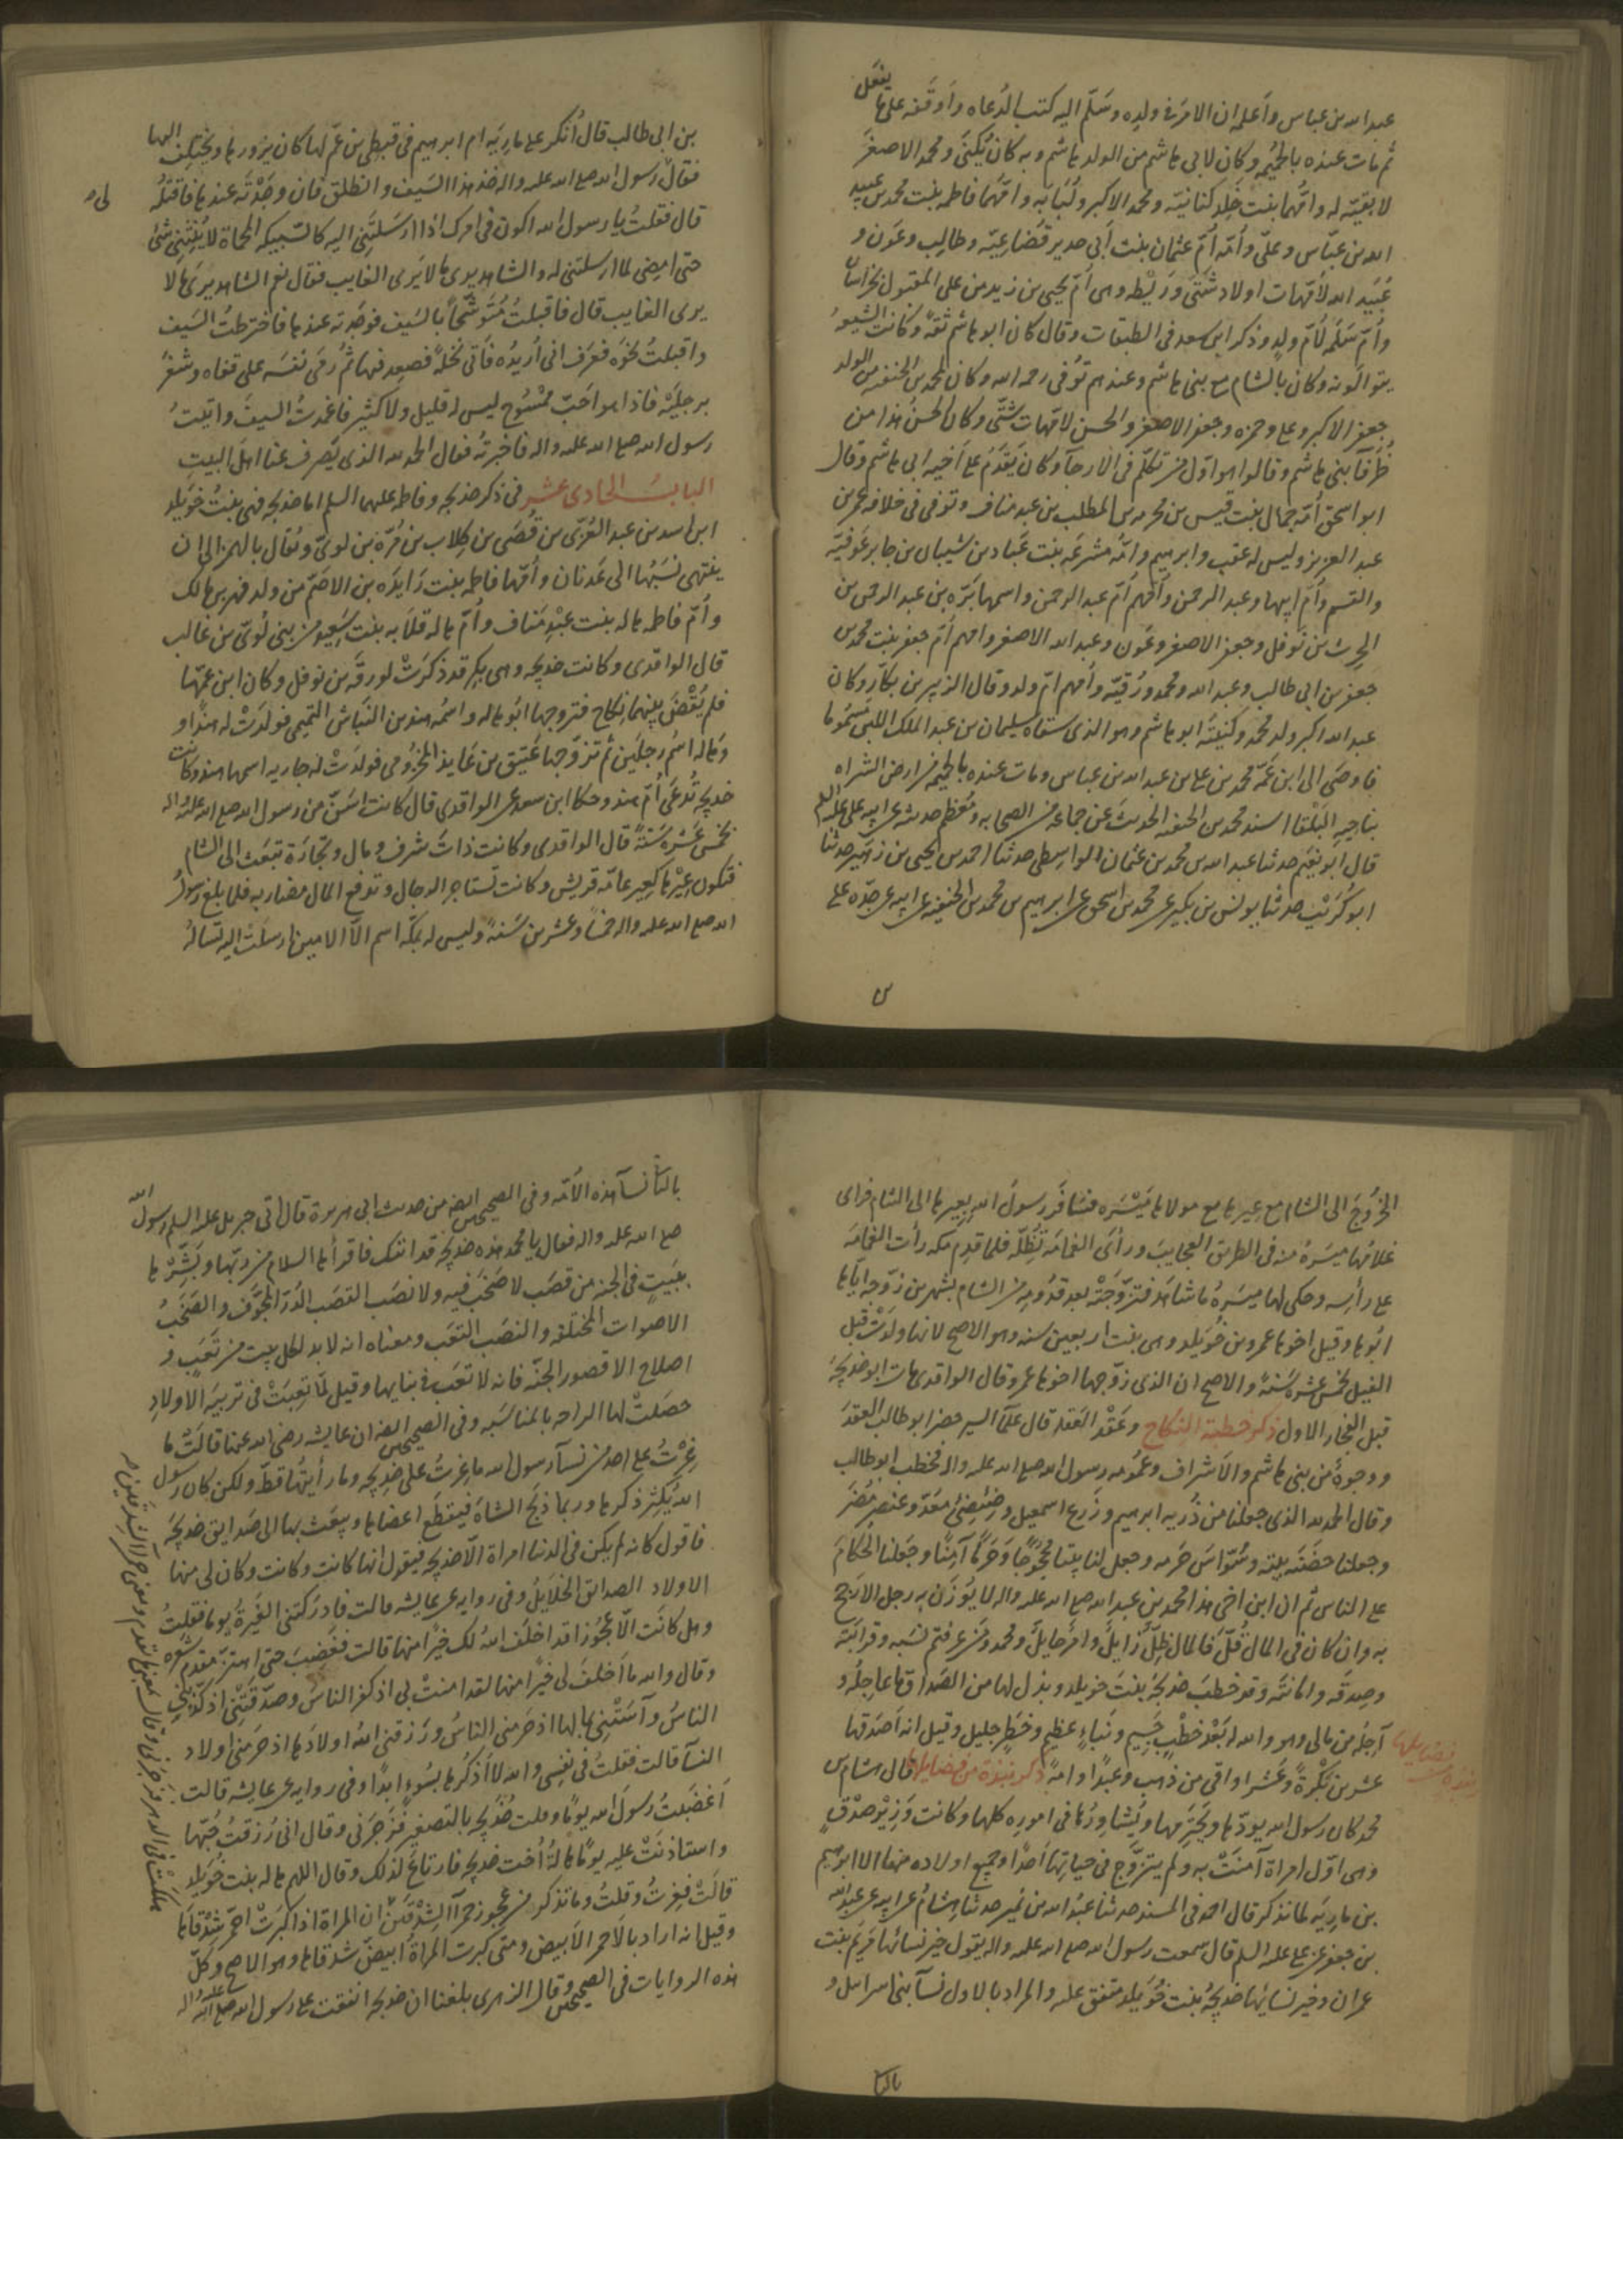 عبد الله بن عباس وأعلمه ان الامر في ولده وسلّم اليه كتب الدعاه وأوقفه على ما يفعل
ثم مات عنده بالحُميمه وكان لابي هاشم من الولد هاشم وبه كان يُكنى ومحمد الاصغر
لا بقيّة له وامّهما بنت خلد كنانية ومحمد الاكبر ولُبَابَه وامّهما فاطمه بنت محمد بن عبيد
الله بن عبّاس وعليّ وأمّه أمّ عثمان بنت أبي حدير قُضاعِيّه وطالِب وعَون و
عُبَيد الله لأمّهات اولاد شتّى ورَيْطه وهى أمّ يحيى بن زيد بن على المقتول بخراسان
وأمّ سَلَمه لأمّ ولدٍ وذكر ابن سعد فى الطبقات وقال كان ابو هاشم ثقةً وكانت الشيعه
يتوالونه وكان بالشام مع بنى هاشم وعندهم تُوفى رحمه الله وكان لمحمد بن الحنفيه من الولد
جعفر الاكبر وعلى وحمزه وجعفر الاصغر والحسن لامّهات شتّى وكان الحسنُ هذا من
ظُرفآ بنى هاشم وقالوا هو اوّل من تكلّم فى الارجآ وكان يَقدَمُ على أخيه ابى هاشم وقال
ابو اسحق أمّه جمال بنت قيس بن مخرمه بن المطلب بن عبد مناف وتوفى فى خلافه عمر بن
عبد العزيز وليس له عقب وابرهيم وامّه مشرعَه بنت عَبّاد بن شيبان بن جابر عَوفيّه
والقسم وأمّ ابيها وعبد الرحمن وأمّهم أمّ عبد الرحمن واسمها بَرّه بن عبد الرحمن بن
الحرث بن نَوفل وجعفر الاصغر وعَون وعبد الله الاصغر وامهم أمّ جعفر بنت محمد بن
جعفر بن ابى طالب وعبد الله ومحمد ورُقيّه وأمهم امّ ولد وقال الزبير بن بكّار وكان
عبد الله اكبر ولد محمد وكنيتُه ابو هاشم وهو الذى سقاه سليمان بن عبد الملك اللبن مَسْمُوما
فاوصَى الى ابن عَمّه محمد بن على بن عبد الله بن عباس ومات عنده بالحُميمه من ارض الشراه
بناحيه البَلْقا اسند محمد بن الحنفيه الحديث عن جماعه من الصحابه ومُعظم حديثه عن ابيه على عليه السلم
قال ابو نعَيم حدثنا عبد الله بن محمد بن عثمان الواسِطى حدثنا احمد بن يحيى بن زهَير حدثنا
ابو كُرَيْب حدثنا يونس بن بكير عن محمد بن اسحق عن ابرهيم بن محمد بن الحنفيه عن ابيه عن جدّه على
بن ابى طالب قال أُنكر على مارِيَه ام ابرهيم فى قبطِى بن عَمّ لها كان يزورها ويختلف اليها
فقال رسول الله صلى الله عليه واله خذ هذا السَيف وانطلق فان وجَدْتَه عندها فاقتلهُ
قال فقلتُ يا رسول الله اكون فى امرك اذا ارسَلتَنِى اليه كالسّبيكه المحماة لا يُثْنِينى شئ
حتى امضِى لما ارسلتنى له والشاهد يرى ما لا يَرى الغايب فقال نعم الشاهد يَرى ما لا
يرى الغايب قال فاقبلتُ مُتَوشِّحًا بالسَيف فوجَدته عندها فاخترطتُ السَيف
واقبلتُ نحَوه فعَرف انى أُريدُه فأتى نخلَةً فصعِد فيها ثمّ رمَى نفسَه على قفاه وشغَرَ
برِجلَيْه فاذا هو اجَبّ ممْسُوح ليس له قليل ولا كثير فاغمدتُ السيفَ واتيتُ
رسول الله صلى الله عليه واله فاخبرتُه فقال الحمد لله الذى يَصرف عنا اهل البيت
البابُ الحادى عشر فى ذكر خديجه وفاطمه عليهما السلم اما خديجه فهى بنتُ خوَيلد
ابن اسد بن عبد العُزّى بن قُصَى بن كِلاب بن مُرّه بن لوىّ ويُقال بالهمز الى ان
ينتهى نسَبُها الى عَدنان وأمّها فاطمه بنت زَايدَه بن الاصَمّ من ولد فهر بن مالك
وأمّ فاطمه هاله بنت عبْدِ مَناف وأُمّ هاله قلاَبه بنت سُعَيد من بنى لُوىّ بن غالب
قال الواقدى وكانت خديجه وهى بِكر قد ذكرَتْ لورقَه بن نوفل وكان ابن عمّها
فلم يُقْضَ بينهما نِكاح فتزوجها ابُو هاله واسمُه هند بن النَبّاش التميمى فولدَتْ له هندًا و
وهاله اسمُ رجلَين ثم تزوّجها عَتِيق بن عَايذ المخزُومى فولدَتْ له جاريه اسمها هند وكانت
خديجه تُدعَى أُمّ هند وحكا ابن سعد عن الواقدى قال كانت اسَنّ من رسول الله صلى الله عليه واله
بخمسَ عشَرةَ سَنَةً قال الواقدى وكانت ذاتَ شرف ومال وتجَارَة تبعَث الى الشام
فتكون عِيرُها كعِير عامّه قريش وكانت تَستاجر الرجال وتدفع المال مضاربه فلما بلغ رسولُ
الله صلى الله عليه واله خمسًا وعشرين سَنَةً وليس له بمكّه اسم الّا الامين ارسلَت اليه تسَالهُ
الخرُوجَ الى الشام مع عِيرها مع مولاها مَيْسَره فسَافَر رسولُ الله بعِيرها الى الشام فراى
غلامُها ميسَرةُ منه فى الطريق العجايبَ ورأى الغمامَه تُظِلّه فلما قدِم مكه رأت الغمَامَه
على رأسِه وحكى لها ميسَرهُ ما شاهَد فتزَوّجَتْه بعد قدُومِه من الشام بشهرين زوّجه ايّاها
ابُوها وقيل اخوها عمرو بن خُوَيلد وهى بنت اربعين سنه وهو الاصح لانها ولدَتْ قبلَ
الفيل بخمسَ عشره سَنةً والاصح ان الذى زوّجها اخوها عمرو وقال الواقدى مات ابو خديجَهَ
قبل الفجار الاول ذكر خطبة النكاح وعَقْد العَقد قال علمآ السير حضر ابو طالب العقدَ
ووجوهٌ من بنى هاشم والاشراف وعمُومه رسول الله صلى الله عليه واله فخطب ابو طالب
وقال الحمد لله الذى جعلنا من ذُريه ابرهيم وزَرع اسمعيل وضِئضِئ مَعَدّ وعنصر مُضَرَ
وجعلنا حضَنَه بيته وسُوّاسَ حَرمه وجعل لنا بيتًا محجُوجًا وَحَرَمًا آمِنًا وجَعلنا الحكّامَ
على الناس ثم ان ابن اخى هذا محمد بن عبد الله صلى الله عليه واله لا يُوزَن به رجل الا رجح
به وان كان فى المال قُلّ فالمال ظِلّ زَايلُ وامرٌ حايلٌ ومحمد من عرفتم نسَبه وقرابَتَه
وصِدقَه وامانَتَه وقد خطبَ خديجَهَ بنت خويلد وبذل لها من الصَداق ما عاجِلُه و
آجِلُه من مالى وهو والله له بَعْد خطْبٌ جَسِيم ونَباءٌ عظيم وخطَرٌ جليل وقيل انه اَصدَقها
عشرين بَكْرةً وعَشر اواقى من ذهَب وعَبدًا وامةً ذكر نبذة من فضايلها قال هشام بن
نبذة من فضايلها
محمد كان رسول الله يودّها ويحترمها ويُشاوِرُها فى امورِه كلها وكانت وَزِيرْ صدْقٍ
وهى اوّل امراة آمنَتْ به ولم يتزَوّج فى حياتِها أحدًا وجميع اولاده منها الا ابرهيم
بن مارِيَه لما نذكر قال احمد فى المسند حدثنا عبدُ الله بن نُمير حدثنا هشامُ عن ابيه عن عبد الله
بن جعفر عن على عليه السلم قال سمعت رسول الله صلى الله عليه واله يقول خير نسائها مَريَم بنت
عمران وخير نسائها خديجَهُ بنت خوُيلد متفق عليه والمراد بالاول نسآ بنى اسرايل و
بالثانى نسآ هذه الامّه وفى الصحيحين ايضًا من حديث ابى هريرة قال أتى جبريل عليه السلم رسولَ الله
صلى الله عليه واله فقال يا محمد هذه خديجَه قد اتتك فاقرأها السلام من ربّها وبَشّرْها
ببَيتٍ فى الجنه من قصَب لا صَخَبَ فيه ولا نصَب القصَب الدُرّ المُجَوّف والصَخَبُ
الاصوات المختلفه والنصَب التعَب ومعناه انه لا بد لكل بيت من تَعَب و
اصلاح الا قصور الجنّه فانه لا تعَب فى بنايها وقيل لمّا تعِبَتْ فى تربيَه الاولادِ
حصَلتْ لها الراحه بالمناسَبه وفى الصحيحين ايضًا ان عايشه رضى الله عنها قالت ما
غِرْتُ على احد من نسآ رسول الله ما غِرتُ على خديجه وما رأيتُها قطّ ولكن كان رسول
الله يُكثِر ذكرها وربما ذبَح الشاهَ فيقطّع اعضاها ويبعَث بها الى صَدايق خديجَهَ
فاقول كانه لم يكن فى الدنيا امراة الّا خديجه فيقول انها كانت وكانت وكان لى منها
الاولاد الصدايق الخلايلُ وفى روايه عن عايشه قالت فادرَكتنى الغَيرةُ يومًا فقلتُ
وهل كانت الّا عجُوزا قد اخلف اللهُ لك خيرًا منها قالت فغَضِبَ حتى اهتزّ مقدم شعَره
وقال والله ما اخلفَ لى خيرًا منها لقد امنَتْ بى اذ كفر الناسُ وصدّقَتْنِى اذ كذّبَنِى
الناسُ وآسَتْنِى بمالها اذ حَرمنى الناسُ ورَزقنى اللهُ اولادَها اذ حَرمَنى اولاد
النسآ قالت فقلتُ فى نفِسى والله لا أَذكُرها بسُوءٍ ابدًا وفى روايه عن عايشه قالت
أغضَبتُ رسولَ الله يومًا وقلت خُدَيجه بالتصغير فزَجَرنى وقال انى رُزقتُ حُبّها
واستاذنَتْ عليه يومًا هالَهُ أخت خديجه فارتاعَ لذلك وقال اللهم هاله بنت خُوَيلد
قالتْ فغِرتُ وقلتُ وما تذكر من عجوز حمرآ الشدْقَين ان المراة اذا كبرَتْ احمرّ شِدْقاها
وقيل انه اراد بالاحمر الابيض ومتى كبرت المراةُ ابيضّ شدقاها وهو الاصح وكلّ
هذه الروايات فى الصحيحين وقال الزهرى بلغنا ان خديجه انفقت على رسول الله صلى الله عليه واله